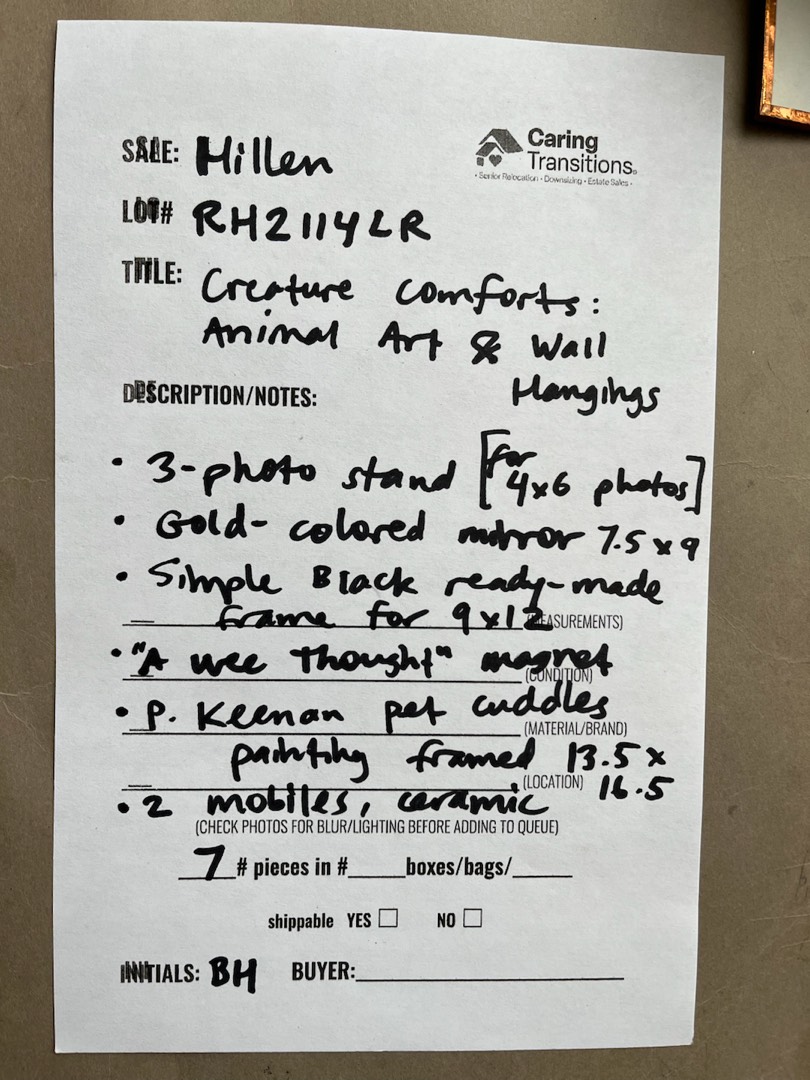 Caring
Transitions®
• Senior Relocation • Downsizing • Estate Sales •
SALE: Hillen
LOT# RH2114LR
TITLE: Creature comforts:
Animal Art & Wall
Hangings
DESCRIPTION/NOTES:
• 3-photo stand [for
4x6 photos]
• Gold-colored mirror 7.5 x 9
• Simple Black ready-made
frame for 9x12
(MEASUREMENTS)
• "A wee thought" magnet
(CONDITION)
• P. Keenan pet cuddles
(MATERIAL/BRAND)
painting framed 13.5 x
16.5
(LOCATION)
• 2 mobiles, ceramic
(CHECK PHOTOS FOR BLUR/LIGHTING BEFORE ADDING TO QUEUE)
7 # pieces in #____ boxes/bags/____
shippable YES ☐ NO ☐
INITIALS: BH BUYER:____